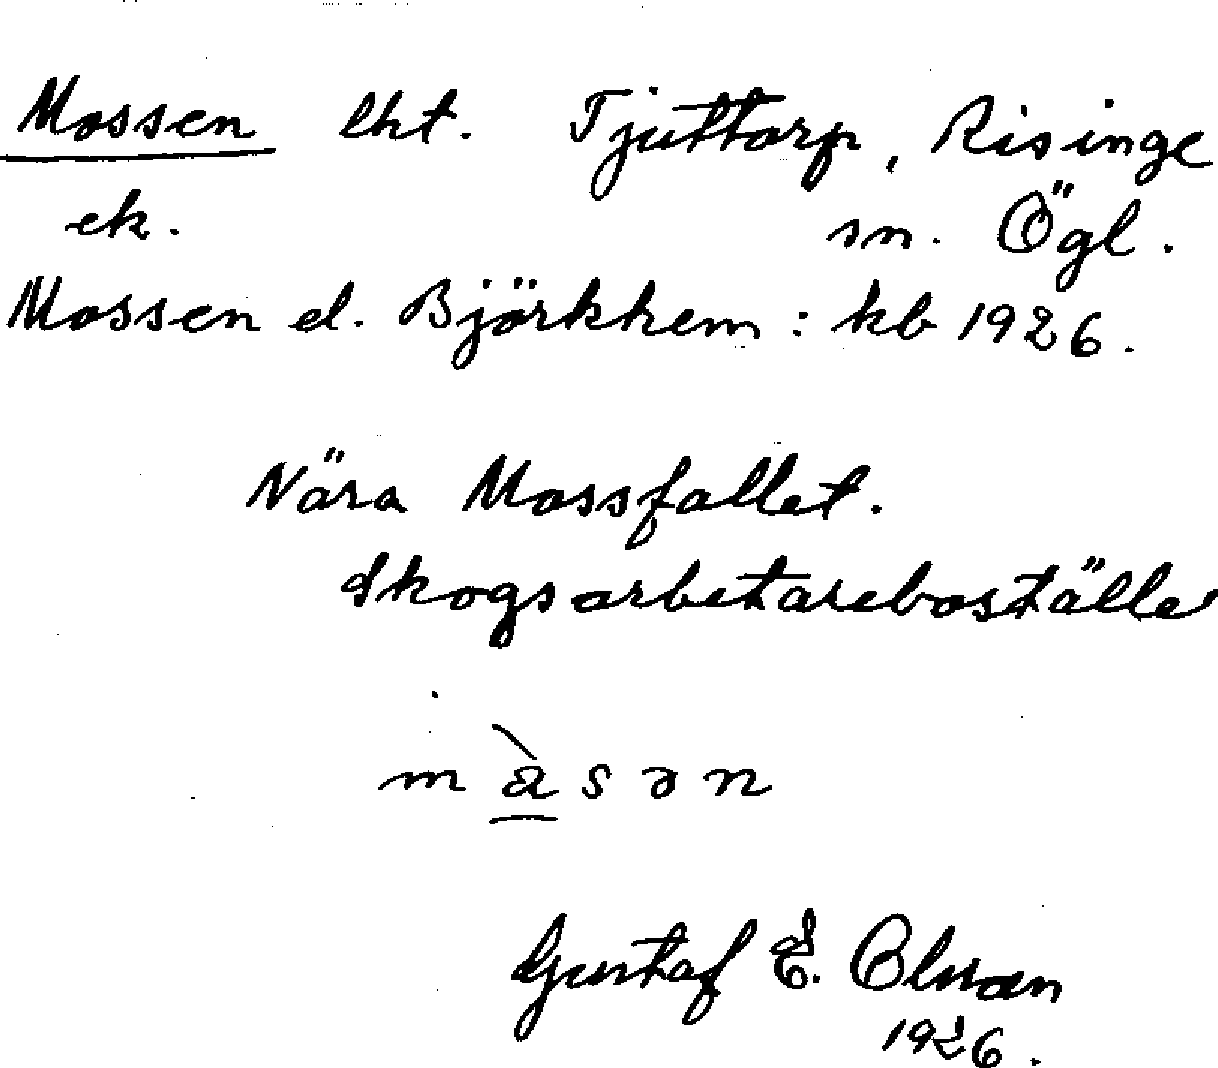 Mossen lht. Tjuttorp, Risinge
ek. sn. Ögl.
Mossen el. Björkhem: kb 1926.
Nära Mossfallet.
Skogsarbetareboställe
m à s ə n
Gustaf E. Olsson
1926.